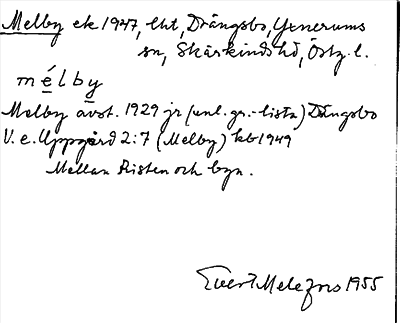 Melby ek 1947, lht, Drängsbo, Yxnerums
sn, Skärkinds hd, Östg. l.
mélby
Melby avst. 1929 jr (enl. gr.-lista) Drängsbo
V. e. Uppgård 2:7 (Melby) kb 1949
Mellan Risten och byn.
Evert Melefors 1955